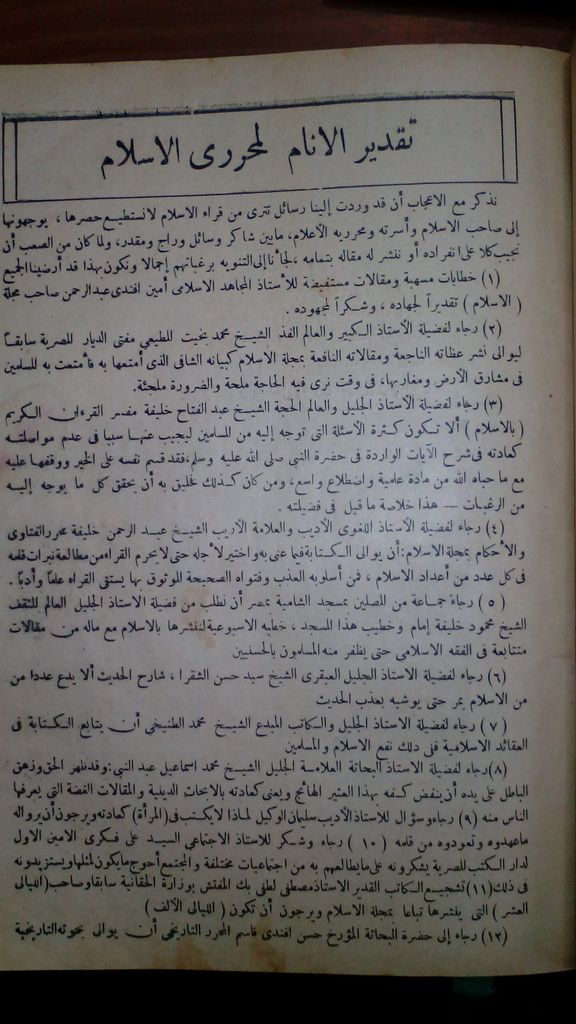 تقدير الانام لمحررى الاسلام
نذكر مع الاعجاب أن قد وردت إلينا رسائل تترى من قراء الاسلام لانستطيع حصرها ، يوجهونها
إلى صاحب الاسلام وأسرته ومحرريه الأعلام، مابين شاكر وسائل وراج ومقدر، ولما كان من الصعب أن
نجيب كلا على انفراده أو ننشر له مقاله بتمامه ، لجأنا إلى التنويه برغباتهم إجمالا ونكون بهذا قد أرضينا الجميع
(١) خطابات مسهبة ومقالات مستفيضة للأستاذ المجاهد الاسلامى أمين افندى عبد الرحمن صاحب مجلة
( الاسلام ) تقديراً لجهاده ، وشكراً لمجهوده .
(٢) رجاء لفضيلة الأستاذ الكبير والعالم الفذ الشيخ محمد بخيت المطيعى مفتى الديار المصرية سابقاً
ليوالى نشر عظاته الناجعة ومقالاته النافعة بمجلة الاسلام كبيانه الشافى الذى أمتعها به فأمتعت به المسلمين
فى مشارق الأرض ومغاربها، فى وقت نرى فيه الحاجة ملحة والضرورة ملجئة.
(٣) رجاء لفضيلة الأستاذ الجليل والعالم الحجة الشيخ عبد الفتاح خليفة مفسر القرءان الكريم
( بالاسلام ) ألا تكون كثرة الأسئلة التى توجه إليه من المسلمين ليجيب عنها سببا فى عدم مواصلته
كعادته فى شرح الآيات الواردة فى حضرة النبى صلى الله عليه وسلم، فقد قسم نفسه على الخير ووقفها عليه
مع ما حباه الله من مادة علمية واضطلاع واسع، ومن كان كذلك خليق به أن يحقق كل ما يوجه إليه
من الرغبات — هذا خلاصة ما قيل فى فضيلته .
(٤) رجاء لفضيلة الأستاذ اللغوى الأديب والعلامة الأريب الشيخ عبد الرحمن خليفة محرر الفتاوى
والأحكام بمجلة الاسلام: أن يوالى الكتابة فيما عنى به واختير لأجله حتى لا يحرم القراء من مطالعة نبرات قلمه
فى كل عدد من أعداد الاسلام ، فمن أسلوبه العذب وفتواه الصحيحة الموثوق بها يستقى القراء علماً وأدباً .
( ٥ ) رجاء جماعة من المصلين بمسجد الشامية بمصر أن نطلب من فضيلة الاستاذ الجليل العالم المثقف
الشيخ محمود خليفة إمام وخطيب هذا المسجد ، خطبه الاسبوعية لننشرها بالاسلام مع ماله من مقالات
متتابعة فى الفقه الاسلامى حتى يظفر منه المسلمون بالحسنيين
(٦) رجاء لفضيلة الأستاذ الجليل العبقرى الشيخ سيد حسن الشقرا ، شارح الحديث ألا يدع عددا من
من الاسلام يمر حتى يوشيه بعذب الحديث
(٧) رجاء لفضيلة الاستاذ الجليل والكاتب المبدع الشيخ محمد الطنيخى أن يتابع الكتابة فى
العقائد الاسلامية ففى ذلك نفع الاسلام والمسلمين
(٨) رجاء لفضيلة الاستاذ البحاثة العلامة الجليل الشيخ محمد اسماعيل عبد النبى: وقد ظهر الحق وزهق
الباطل على يده أن ينفض كفه بهذا العثير الهائج ويعنى كعادته بالابحاث الدينية والمقالات الفضة التى يعرفها
الناس منه (٩) رجاء وسؤال للاستاذ الأديب سليمان الوكيل لماذا لا يكتب فى (المرأة) كعادته ويرجون أن يروا له
ماعهدوه وتعودوه من قلمه (١٠) رجاء وشكر للاستاذ الاجتماعى السيد على فكرى الامين الاول
لدار الكتب المصرية يشكرونه على مايطالعهم به من اجتماعيات مختلفة والمجتمع أحوج مايكون لمثلها ويستزيدونه
فى ذلك (١١) تشجيع الكاتب القدير الاستاذ مصطفى لطفى بك المفتش بوزارة الحقانية سابقا وصاحب (الليالى
العشر ) التى ينشرها تباعا بمجلة الاسلام ويرجون أن تكون ( الليالى الألف )
(١٢) رجاء إلى حضرة البحاثة المؤرخ حسن افندى قاسم المحرر التاريخى أن يوالى بحوثه التاريخية